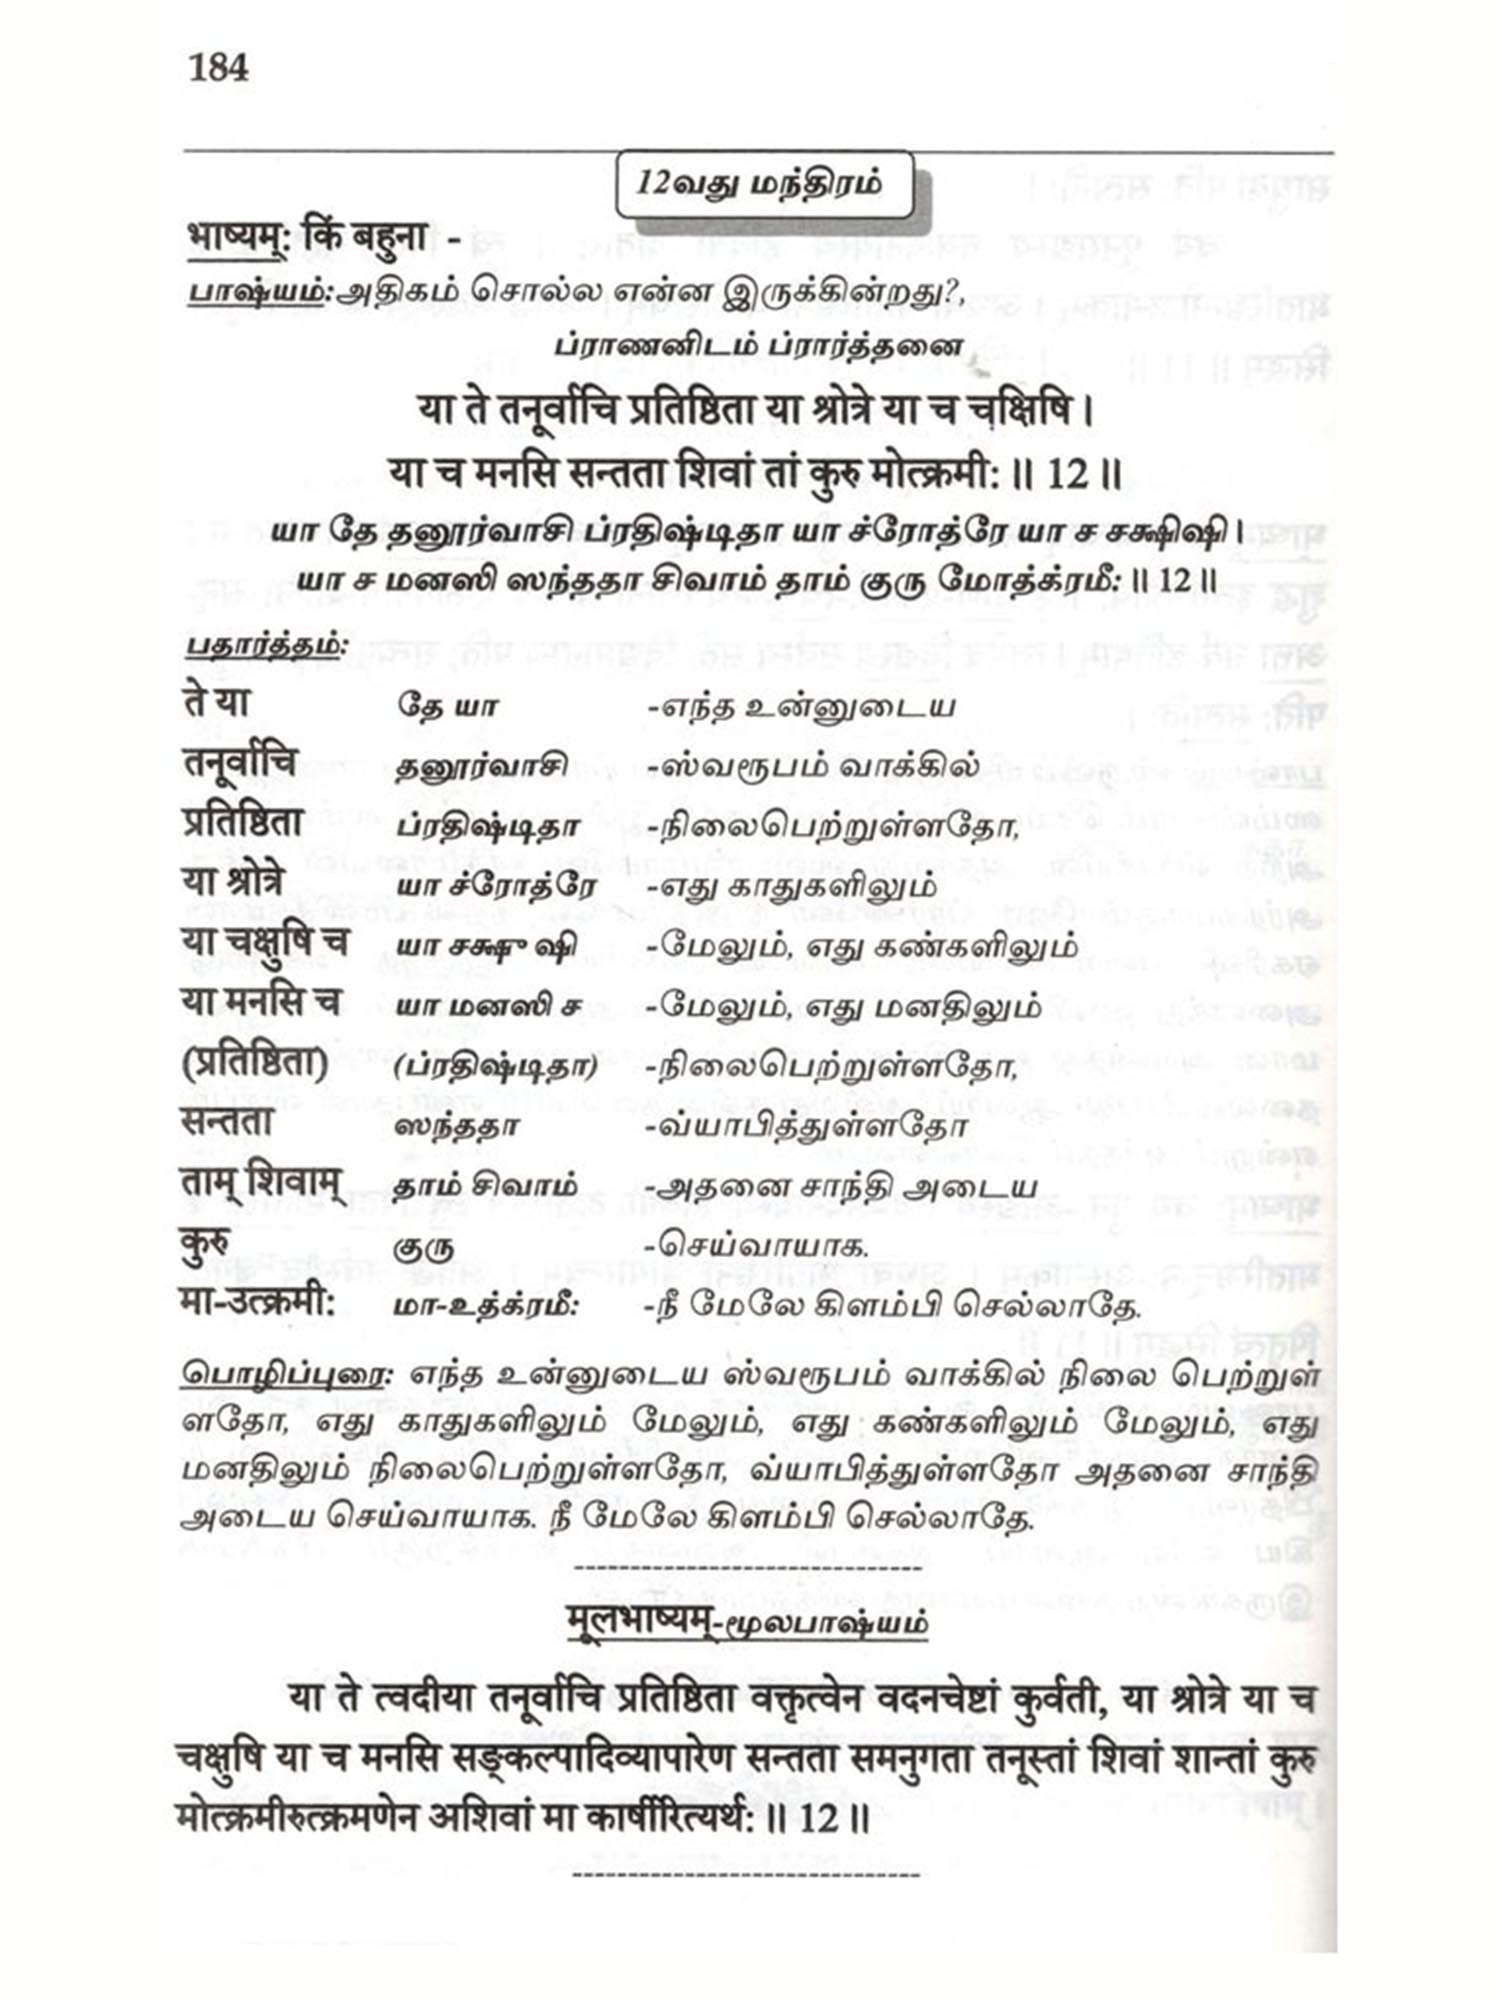 184
12வது மந்திரம்
भाष्यम्: किं बहुना -
பாஷ்யம்:அதிகம் சொல்ல என்ன இருக்கின்றது?,
ப்ராணனிடம் ப்ரார்த்தனை
या ते तनूर्वाचि प्रतिष्ठिता या श्रोत्रे या च चक्षिषि।
या च मनसि सन्तता शिवां तां कुरु मोत्क्रमी: ॥ 12 ॥
யா தே தனூர்வாசி ப்ரதிஷ்டிதா யா ச்ரோத்ரே யா ச சக்ஷிஷி।
யா ச மனஸி ஸந்ததா சிவாம் தாம் குரு மோத்க்ரமீ: ॥ 12 ॥
பதார்த்தம்:
ते या தே யா -எந்த உன்னுடைய
तनूर्वाचि தனூர்வாசி -ஸ்வரூபம் வாக்கில்
प्रतिष्ठिता ப்ரதிஷ்டிதா -நிலைபெற்றுள்ளதோ,
या श्रोत्रे யா ச்ரோத்ரே -எது காதுகளிலும்
या चक्षुषि च யா சக்ஷு ஷி -மேலும், எது கண்களிலும்
या मनसि च யா மனஸி ச -மேலும், எது மனதிலும்
(प्रतिष्ठिता) (ப்ரதிஷ்டிதா) -நிலைபெற்றுள்ளதோ,
सन्तता ஸந்ததா -வ்யாபித்துள்ளதோ
ताम् शिवाम् தாம் சிவாம் -அதனை சாந்தி அடைய
कुरु குரு -செய்வாயாக.
मा-उत्क्रमी: மா-உத்க்ரமீ: -நீ மேலே கிளம்பி செல்லாதே.
பொழிப்புரை: எந்த உன்னுடைய ஸ்வரூபம் வாக்கில் நிலை பெற்றுள்
ளதோ, எது காதுகளிலும் மேலும், எது கண்களிலும் மேலும், எது
மனதிலும் நிலைபெற்றுள்ளதோ, வ்யாபித்துள்ளதோ அதனை சாந்தி
அடைய செய்வாயாக. நீ மேலே கிளம்பி செல்லாதே.
-------------------------------
मूलभाष्यम्-மூலபாஷ்யம்
या ते त्वदीया तनूर्वाचि प्रतिष्ठिता वक्तृत्वेन वदनचेष्टां कुर्वती, या श्रोत्रे या च
चक्षुषि या च मनसि सङ्कल्पादिव्यापारेण सन्तता समनुगता तनूस्तां शिवां शान्तां कुरु
मोत्क्रमीरुत्क्रमणेन अशिवां मा कार्षीरित्यर्थ: ॥ 12 ॥
-------------------------------